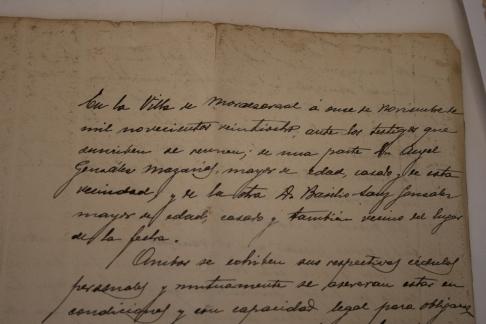 En la Villa de Morasverdes á once de Noviembre de
mil novecientos veintiocho, ante los testigos que
suscriben se reunen; de una parte Dn Angel
González Mazarías, mayor de edad, casado y de esta
vecindad, y de la otra Dn Basilio Sanz González
mayor de edad, casado y también vecino del lugar
de la fecha.
Ambos se exhiben sus respectivas cédulas
personales y mutuamente se aseveran estar en
condiciones y con capacidad legal para obligarse